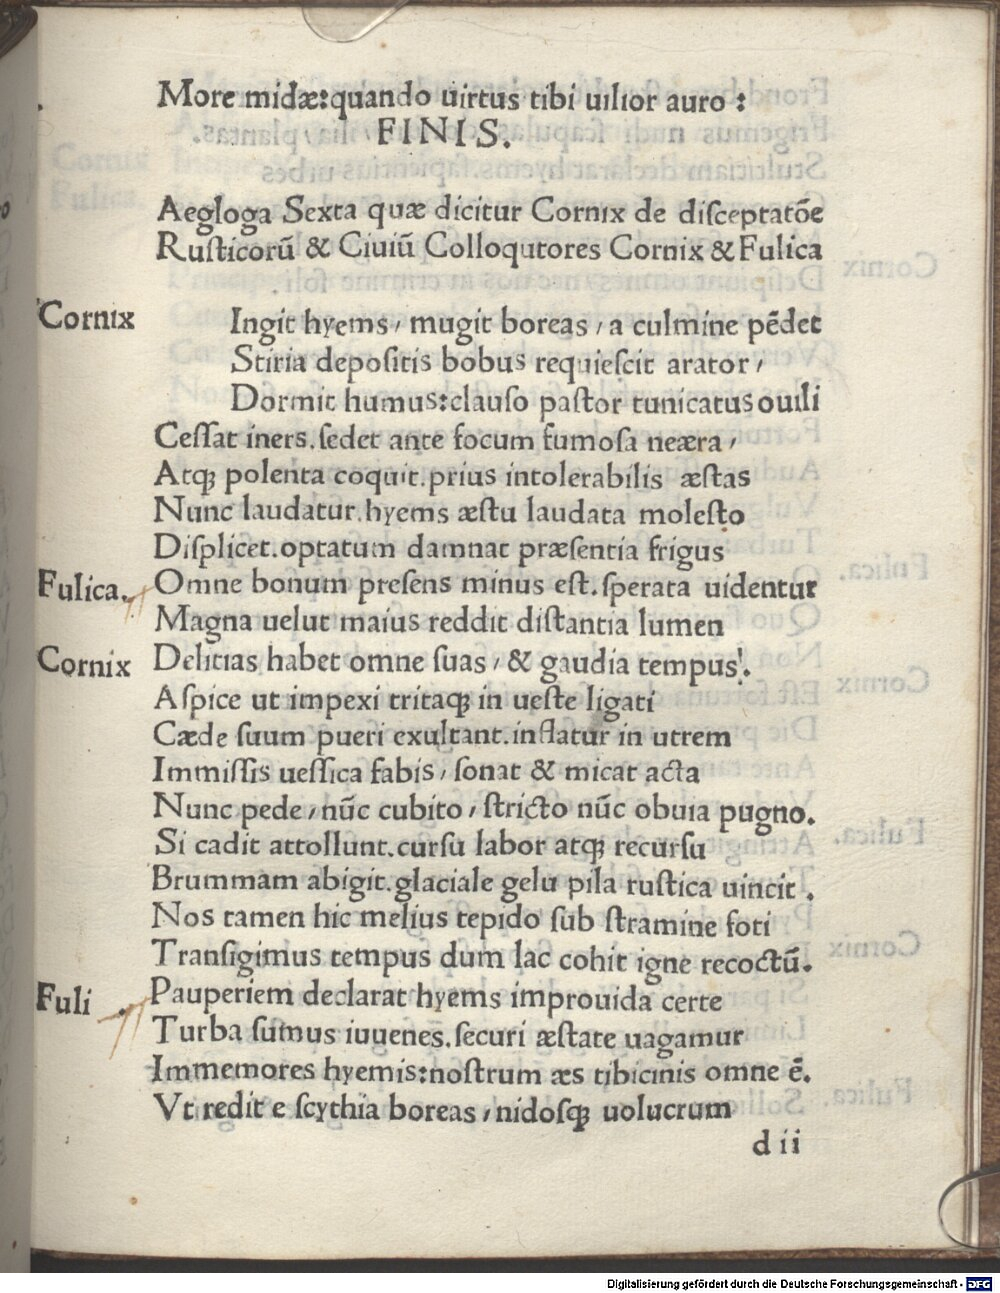 More midæ:quando uirtus tibi uilior auro :
FINIS.
Aegloga Sexta quæ dicitur Cornix de disceptatōe
Rusticorū & Ciuiū Colloqutores Cornix & Fulica
Cornix Ingit hyems / mugit boreas / a culmine pēdet
Stiria depositis bobus requiescit arator /
Dormit humus:clauso pastor tunicatus ouili
Cessat iners.sedet ante focum fumosa neæra /
Atqꝫ polenta coquit.prius intolerabilis æstas
Nunc laudatur.hyems æstu laudata molesto
Displicet.optatum damnat præsentia frigus
Fulica. Omne bonum presens minus est.sperata uidentur
Magna uelut maius reddit distantia lumen
Cornix Delitias habet omne suas / & gaudia tempus.
Aspice ut impexi tritaqꝫ in ueste ligati
Cæde suum pueri exultant.inflatur in utrem
Immissis uessica fabis / sonat & micat acta
Nunc pede / nūc cubito / stricto nūc obuia pugno.
Si cadit attollunt.cursu labor atqꝫ recursu
Brummam abigit.glaciale gelu pila rustica uincit .
Nos tamen hic melius tepido sub stramine foti
Transigimus tempus dum lac cohit igne recoctū.
Fuli . Pauperiem declarat hyems improuida certe
Turba sumus iuuenes.securi æstate uagamur
Immemores hyemis:nostrum æs tibicinis omne ē.
Vt redit e scythia boreas / nidosqꝫ uolucrum
d ii
Digitalisierung gefördert durch die Deutsche Forschungsgemeinschaft - DFG